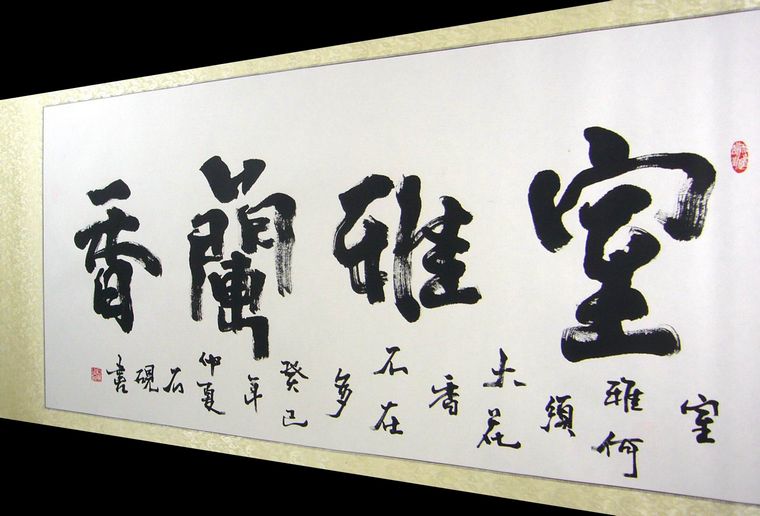 室雅蘭香
室雅何須大花香不在多癸巳年仲夏石硯書